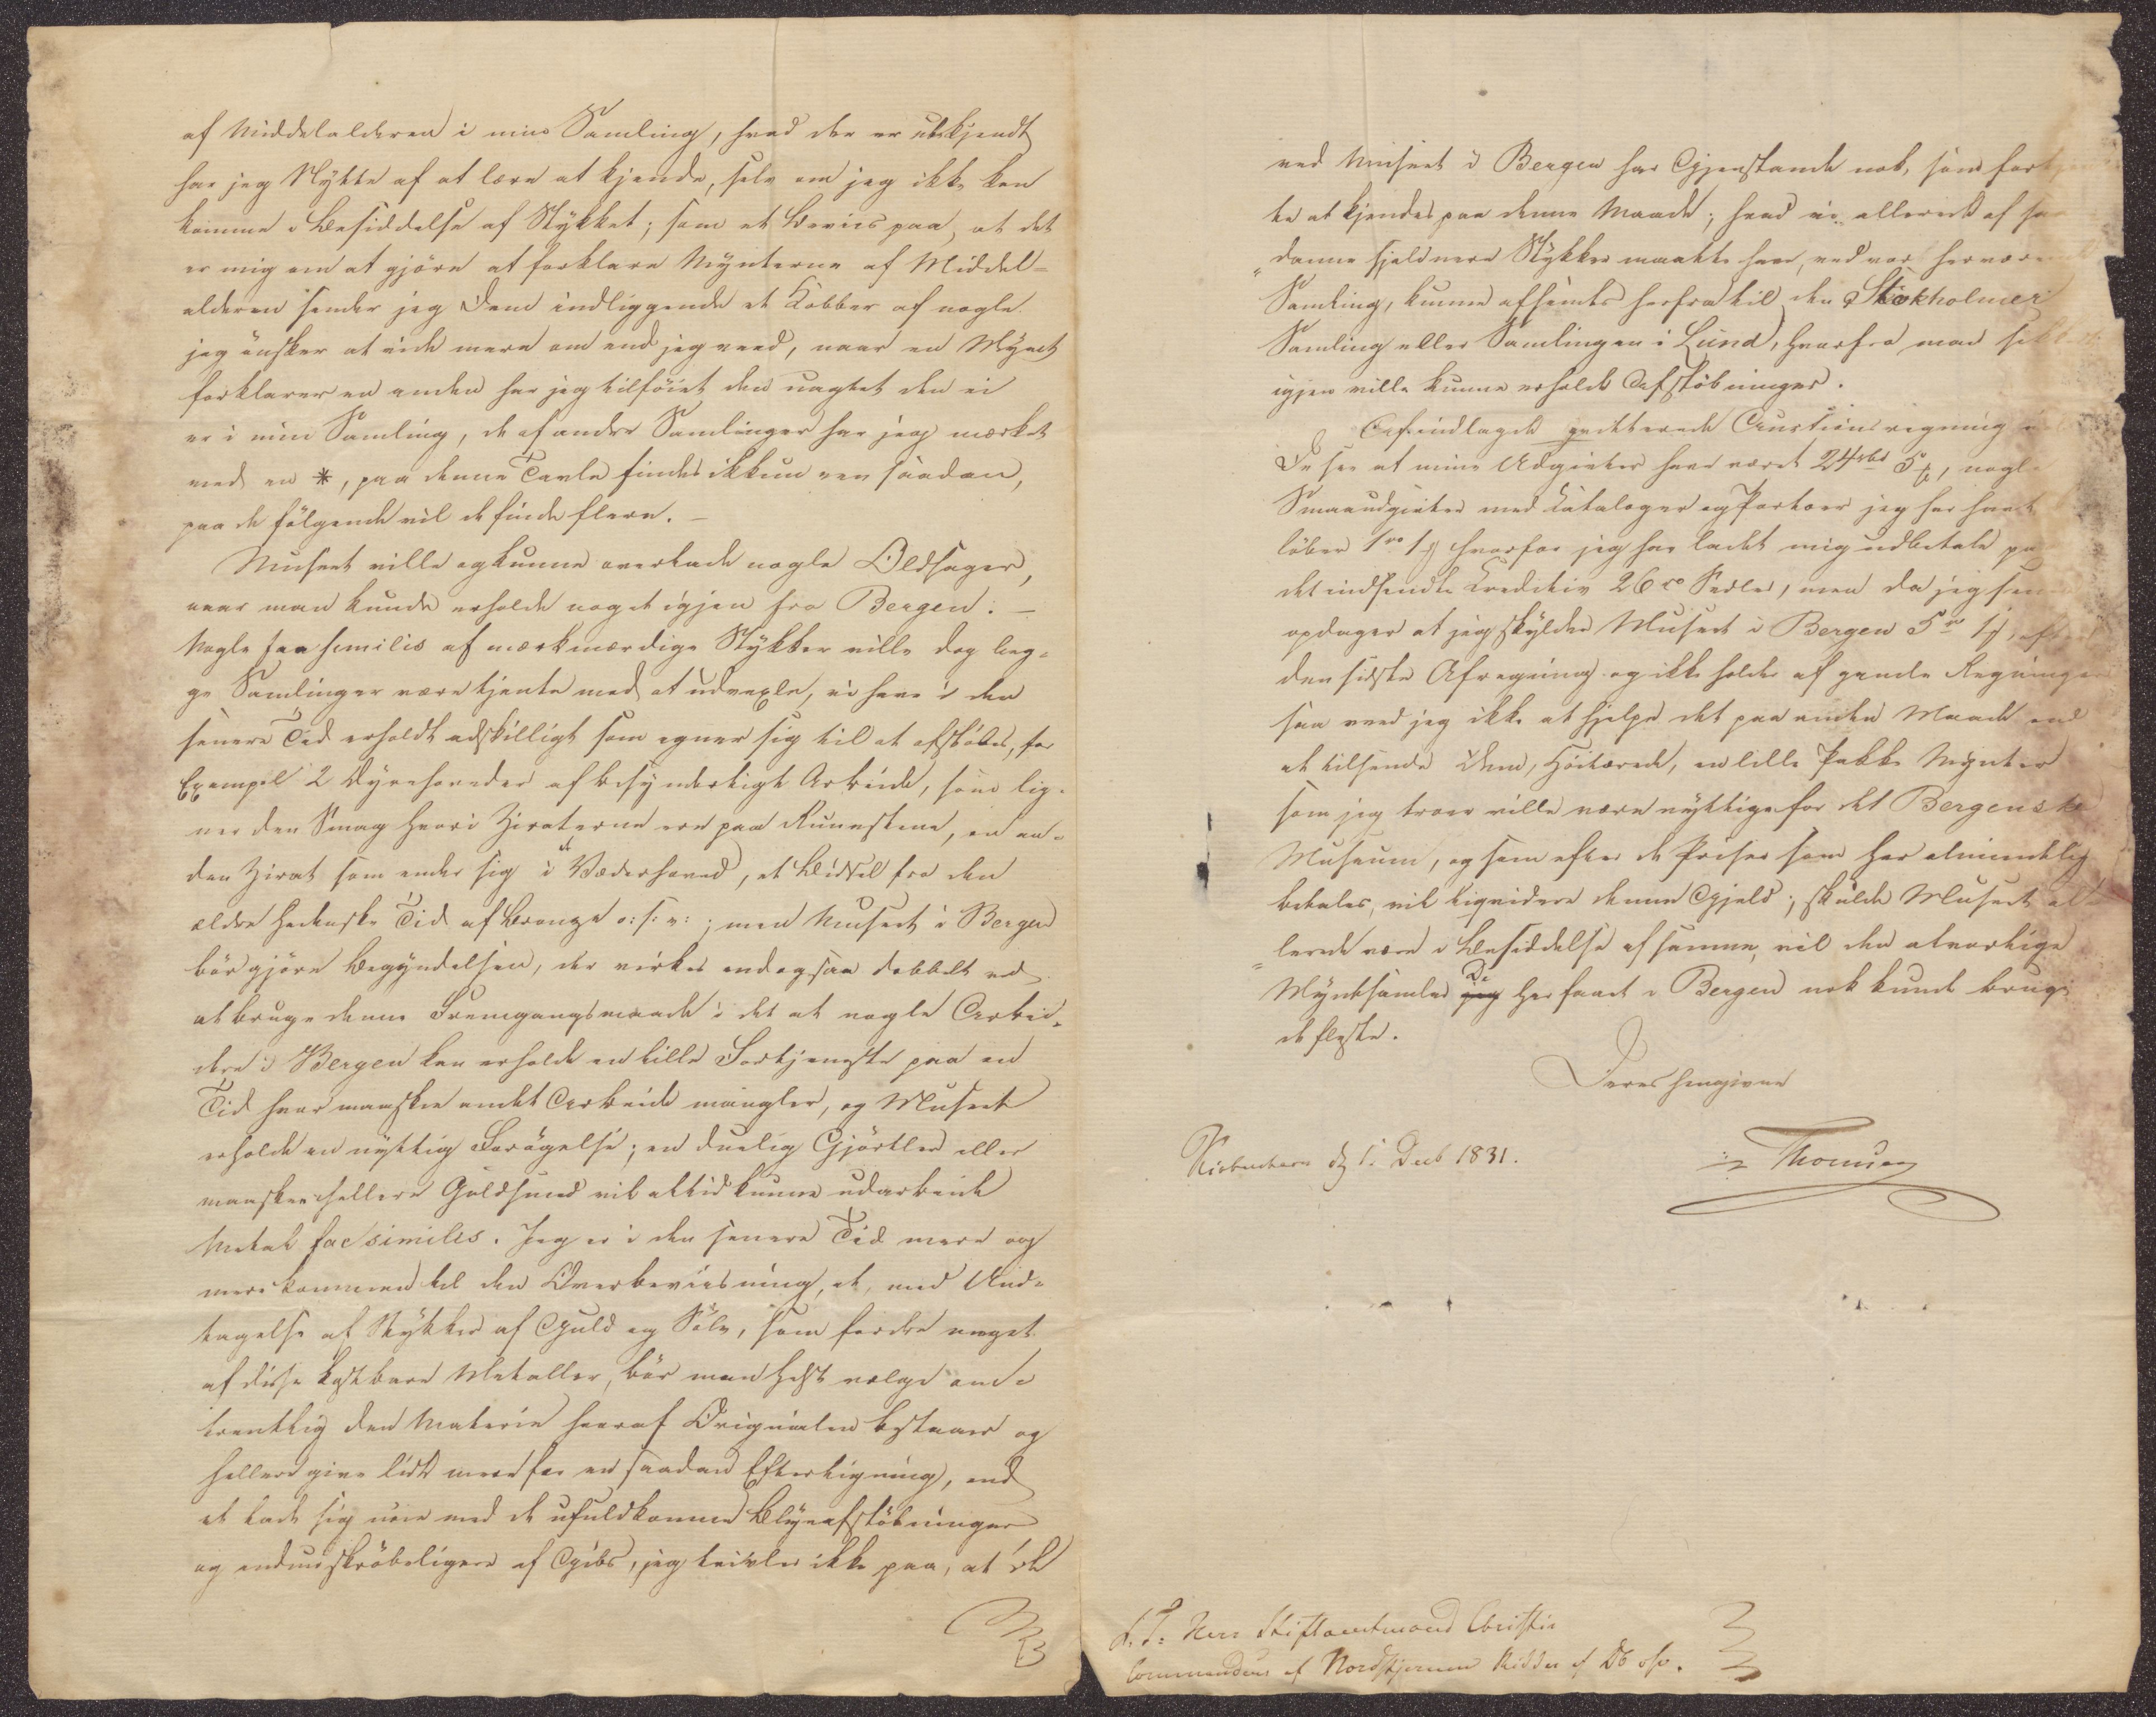 af Middelalderen i min Samling, hvad der er ubekjendt
har jeg Nytte af at lære at kjende, selv om jeg ikke kan
komme i Besiddelse af Stykket; som et Beviis paa, at det
er mig om at gjöre at forklare Mynterne af Middel-
alderen sender jeg Dem indliggende et Kobber af nogle
jeg önsker at vide mere om end jeg veed, naar en Mynt
forklarer en anden har jeg tilföiet den uagtet den ei
er i min Samling, de af andre Samlinger har jeg mærket
med en *, paa denne Tavle findes ikkun een saadan,
paa de fölgende vil de finde flere. –
Museet ville og kunne overlade nogle Oldsager,
naar man kunde erholde noget igjen fra Bergen: –
Nogle facsimilis af mærkværdige Stykker ville dog beg-
ge Samlinger være tjente med at udvexle, vi have i den
senere Tid erholdt adskilligt som egner sig til at afstöbes, for
Exempel 2 Dyrehoveder af besynderligt Arbeide, som lig-
ner den Smag hvori Ziraterne ere paa Runestene, en an-
den Zirat som ender sig i et Væderhoved, et Bidsel fra den
ældre hedenske Tid af Bronze o: s: v: ; men Museet i Bergen
bör gjöre Begyndelsen, der virkes endogsaa dobbelt ved
at bruge denne Fremgangsmaade i det at nogle Arbei-
dere i Bergen kan erholde en lille Fortjeneste paa en
Tid hvor maaskee andet Arbeide mangler, og Museet
erholde en nyttig Forögelse; en duelig Gjörtler eller
maaskee hellere Guldsmed vil altid kunne udarbeide
Metal facsimiles. Jeg er i den senere Tid mere og
mere kommen til den Overbeviisning, at, med Und-
tagelse af Stykker af Guld og Sölv, som fordre meget
af disse kostbare Metaller, bör man helst vælge om-
trentlig den Materie hvoraf Originalen bestaaer og
hellere give lidt mere for en saadan Efterligning, end
at lade sig nöie med de ufuldkomne Blyeafstöbninger
og endnu skröbeligere af Gibs, jeg tvivler ikke paa, at de
ved Museet i Bergen har Gjenstande nok, som fortjen
te at kjendes paa denne Maade; hvad vi allerede af saa
danne sjeldnere Stykker maatte have, ved vor herværende
Samling, kunne afsendes herfra til den Stokholmer
Samling eller Samlingen i Lund, hvorfra man
igjen ville kunne erholde Afstöbninger.
Af indlagde qvitterede Auctionsregning
De see at mine Udgivter have været 24 rbd 5 ß, nogle
Smaaudgivter med Cataloger og Portoer jeg har havt
löber 1 hvorfor jeg har ladet mig udbetale paa
det indsendte Creditiv 26 Sedler, men da jeg
opdager at jeg skylder Museet i Bergen 5
den sidste Afregning og ikke holder af gamle Regninger
saa veed jeg ikke at hjelpe det paa anden Maade end
at tilsende Dem, Höitærede, en lille Pakke Mynter
som jeg troer ville være nyttige for det Bergenske
Museum, og som efter de Priser som her almindelig
betales, vil liqvidere denne Gjeld; skulde Museet al
lerede være i Besiddelse af samme, vil den alvorlige
Myntsamler De har faaet i Bergen nok kunde bruge
de fleste.
Deres hengivne
Thomsen
Kiöbenhavn d 1. Decb 1831.
S. T: Herr Stiftamtmand Christie
Commandeur af Nordstjernen Ridder af DO ofv.